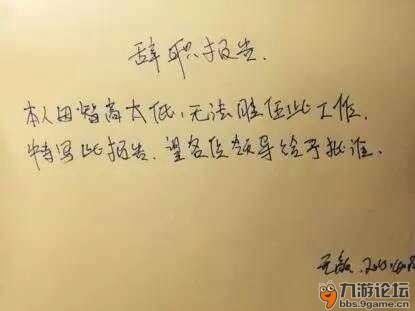 辞职报告.
本人因智商太低,无法胜任此工作.
特写此报告.望各位领导给予批准.
九游论坛
bbs.9game.cn